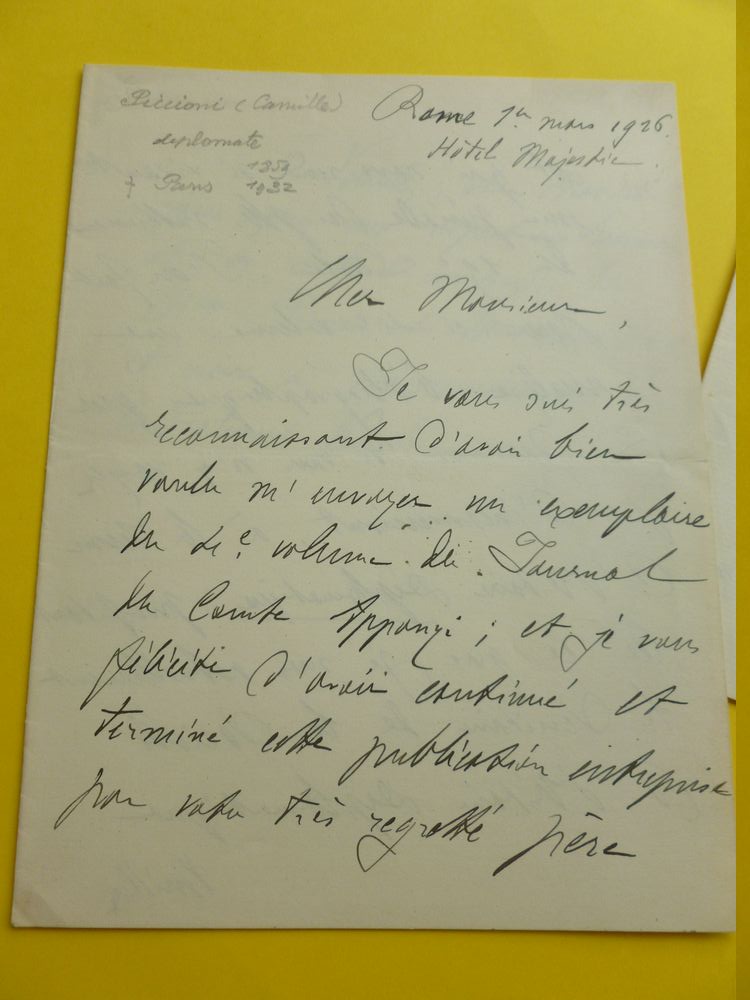 Piccioni (Camille)
diplomate
1859
† Paris 1932
Rome 1er mars 1926.
Hôtel Majestic.
Cher Monsieur,
Je vous suis très
reconnaissant d'avoir bien
voulu m'envoyer un exemplaire
du 4e. volume du Journal
du Comte Apponyi ; et je vous
félicite d'avoir continué et
terminé cette publication entreprise
par votre très regretté père